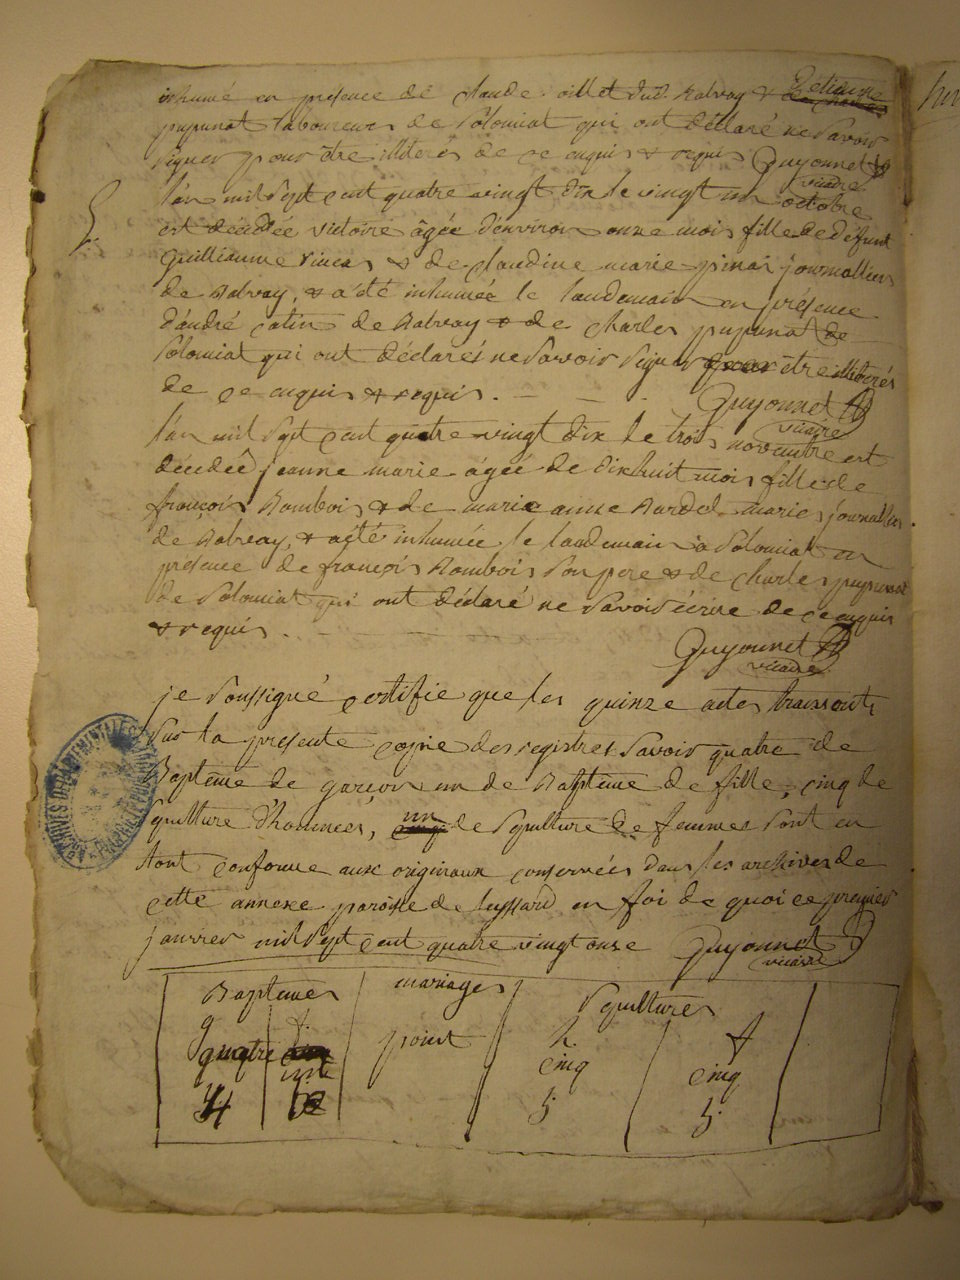 inhumé en présence de claude oillet dud. Balvay & Etienne
pupunat laboureurs de Solomiat qui ont déclaré ne savoir
signer pour être illiterés de ce enquis & requis Guyonnet
vicaire
l'an mil sept cent quatre vingt dix le vingt un octobre
est décédée victoire âgée d'environ onze mois fille de défunt
Guillaume & de claudine marie journalliers
de Balvay, & a été inhumée le landemain en présence
d'andré catin de Balvay & de charles pupunat de
Solomiat qui ont déclarés ne savoir signer pour être illiterés
de ce enquis & requis. Guyonnet
vicaire
l'an mil sept cent quatre vingt dix le trois novembre est
décédeé jeanne marie âgeé de dix huit mois fille de
françois Bombois & de marie anne Bardet mariés journalliers
de Balvay, & a été inhumée le landemain à Solomiat en
présence de françois Bombois son pere & de charles pupunat
de Solomiat qui ont déclaré ne savoir écrire de ce enquis
& requis. Guyonnet
vicaire
5.
je soussigné certifie que les quinze actes transcrits
sur la présente copie des registres savoir quatre de
Baptême de garçon un de Baptême de fille, cinq de
sepulture d'hommes, cinq un de sepulture de femmes sont en
tout conforme aux originaux conservées dans les archives de
cette annexe paroisse de en foi de quoi ce premier
janvier mil sept cent quatre vingt onze Guyonnet
vicaire
ARCHIVES DÉPARTEMENTALES
Baptêmes mariages Sepultures
g f. point h. f
quatre cinq cinq
4 5 5